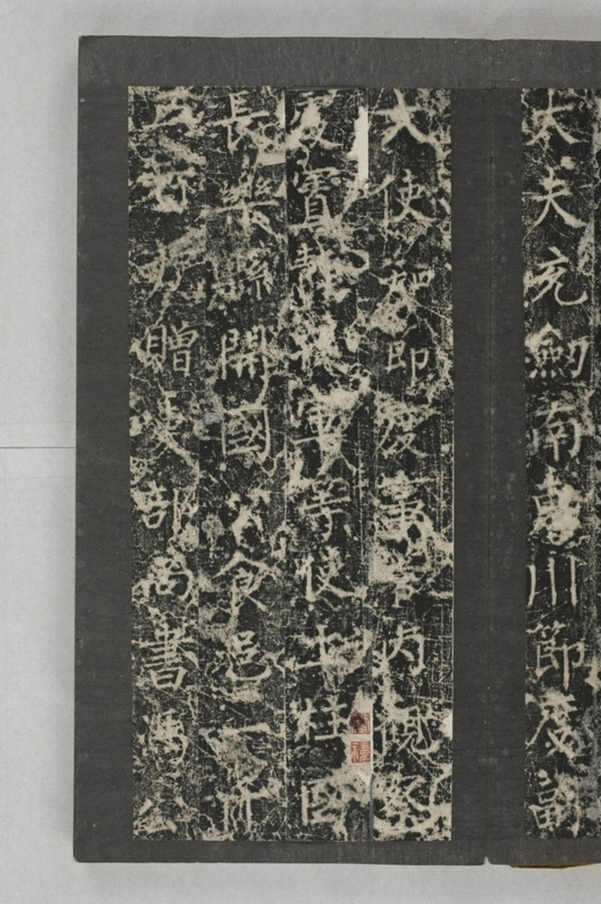 大夫充劍南東川節度副
大使知節度事管內觀察
處置靜戎軍等使上柱國
長樂縣開國公食邑一千
五百戶贈吏部尚書馮公